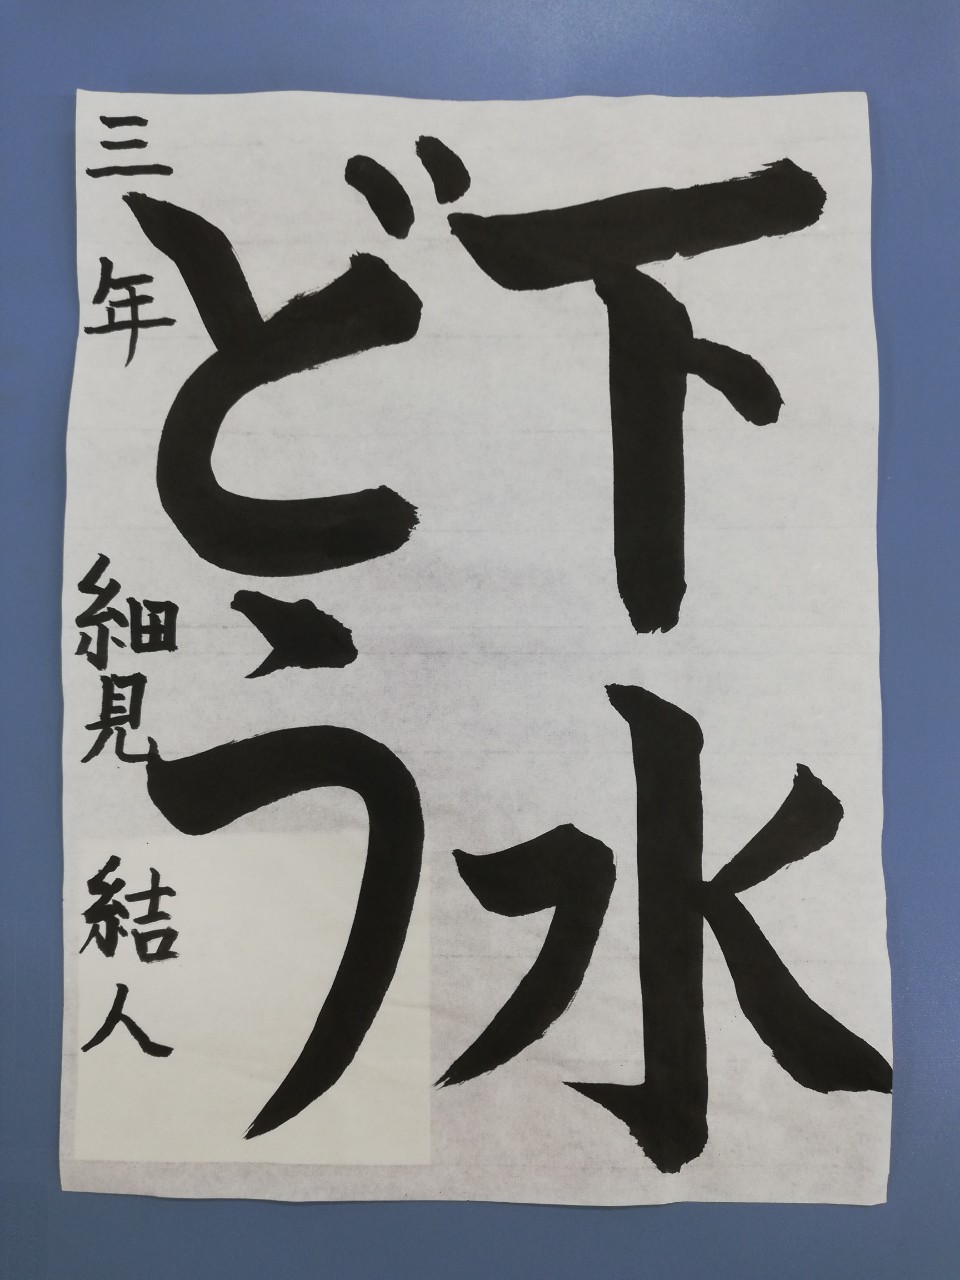 下水
どう
三年 細見 結人